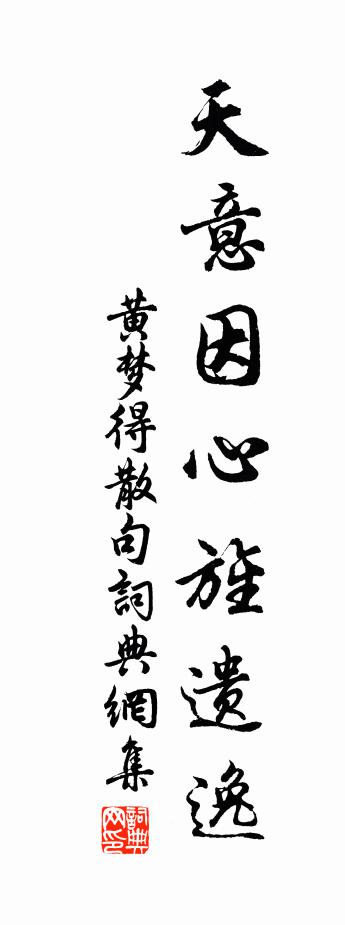 天意因心旌遗逸
黄梦得散句詞典網集
詞典网印